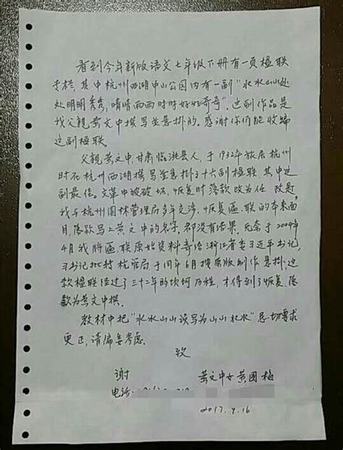 看到今年新版语文七年级下册有一页楹联
于栏, 其中杭州西湖中山公园内有一副“水水山山处
处明明秀秀, 晴晴雨雨时时好好奇奇”。这副作品是
我父亲黄文中撰写並悬挂的。感谢你们能收编
这副楹联。
父亲黄文中, 甘肃临洮县人, 于1932年旅居杭州
时在杭州西湖撰写並悬挂了十六副楹联, 其中这
副最佳。文革中被破坏, 恢复时落款改为佚名,
我与杭州园林管理局多年交涉, 恢复匾联的本来面
目, 落款写上黄文中的名字, 都没有结果, 无奈于2004年
4月我将匾联原始资料寄给浙江省委习近平书记,
习书记批转杭管局于同年6月按原版制作悬挂, 这
款楹联经过了三十二年的坎坷历程, 才得到了恢复落
款为黄文中撰。
教材中把“水水山山误写为山山水水”恳切要求
更正, 请编委考虑。
致
谢 黄文中女黄国梅
电话:
2017.4.16